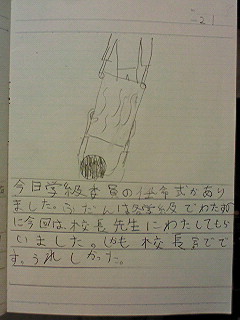 -21
今日学級委員の任命式があり
ました。ふだんは各学級でわたすの
に今回は、校長先生にわたしてもら
いました。しかも校長室でで
す。うれしかった。